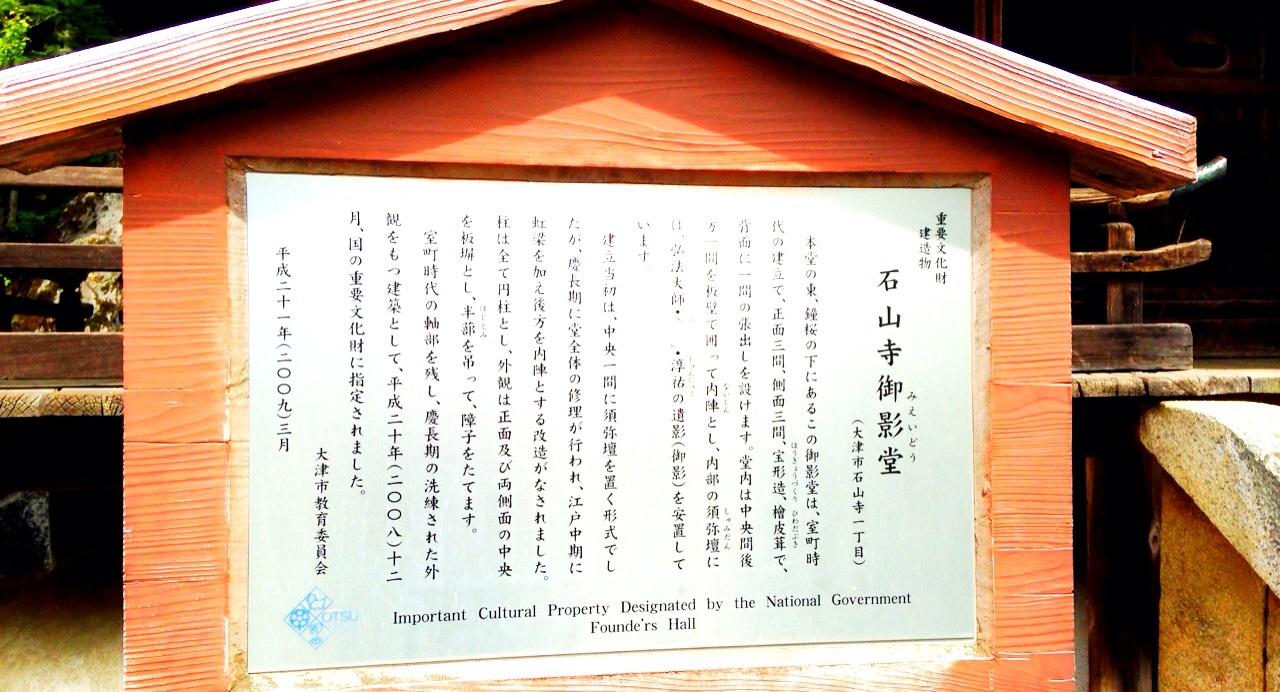 重要文化財
建造物
石山寺御影堂
みえいどう
(大津市石山寺一丁目)
本堂の東、鐘桜の下にあるこの御影堂は、室町時
代の建立で、正面三間、側面三間、宝形造、檜皮葺で、
ほうぎょうづくり ひわだぶき
背面に一間の張出しを設けます。堂内は中央間後
方一間を板壁で囲って内陣とし、内部の須弥壇に
ないじん しゅみだん
は、弘法大師・ ・淳祐の遺影(御影)を安置して
います。
建立当初は、中央一間に須弥壇を置く形式でし
たが、慶長期に堂全体の修理が行われ、江戸中期に
虹梁を加え後方を内陣とする改造がなされました。
柱は全て円柱とし、外観は正面及び両側面の中央
を板塀とし、半蔀を吊って、障子をたてます。
はじとみ
室町時代の軸部を残し、慶長期の洗練された外
観をもつ建築として、平成二十年(二〇〇八)十二
月、国の重要文化財に指定されました。
大津市教育委員会
平成二十一年(二〇〇九)三月
OTSU
Important Cultural Property Designated by the National Government
Founde'rs Hall